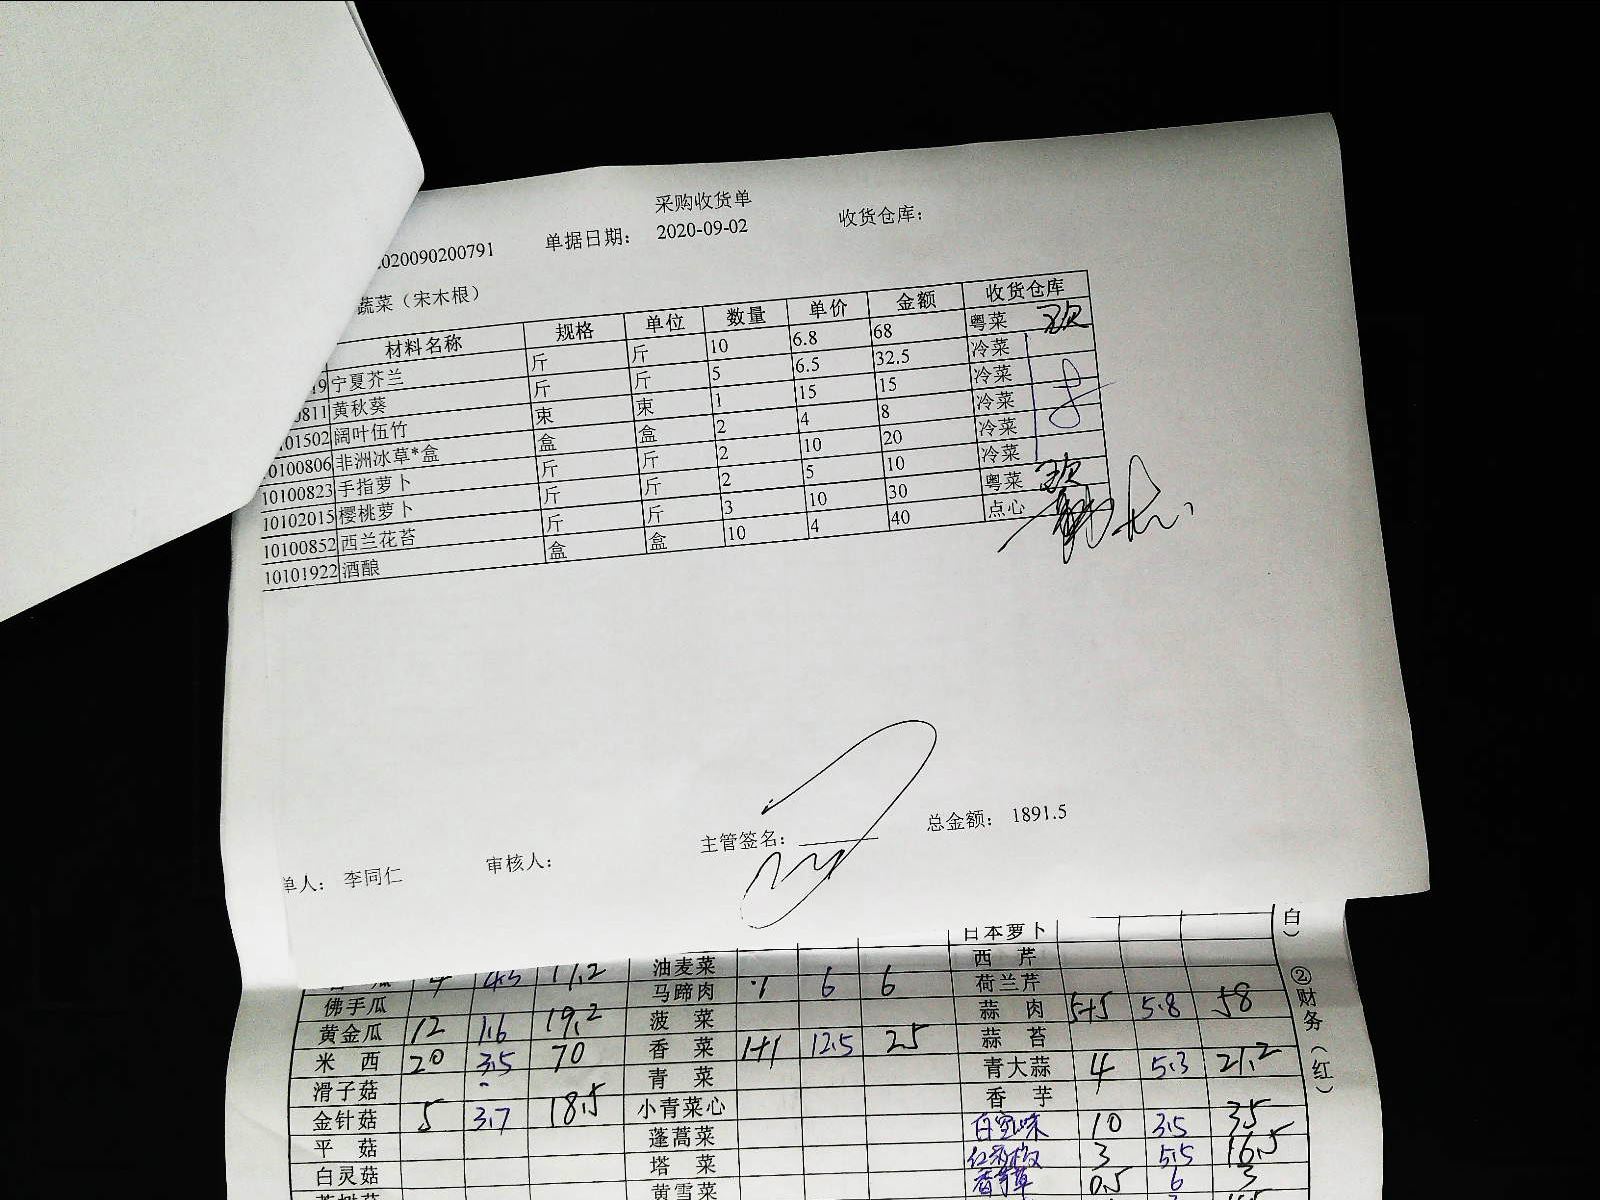 采购收货单
020090200791 单据日期： 2020-09-02 收货仓库：
蔬菜（宋木根）
材料名称 规格 单位 数量 单价 金额 收货仓库
19 宁夏芥兰 斤 斤 10 6.8 68 粤菜
0811 黄秋葵 斤 斤 5 6.5 32.5 冷菜
101502 阔叶伍竹 束 束 1 15 15 冷菜
10100806 非洲冰草*盒 盒 盒 2 4 8 冷菜
10100823 手指萝卜 斤 斤 2 10 20 冷菜
10102015 樱桃萝卜 斤 斤 2 5 10 冷菜
10100852 西兰花苔 斤 斤 3 10 30 粤菜
10101922 酒酿 盒 盒 10 4 40 点心
主管签名： 总金额： 1891.5
单人： 李同仁 审核人：
日本萝卜 白）
瓜 4 4.3 17.2 油麦菜 西芹
佛手瓜 马蹄肉 1 6 6 荷兰芹
黄金瓜 12 1.6 19.2 菠菜 蒜肉 5+5 5.8 58
米西 20 3.5 70 香菜 1+1 12.5 25 蒜苔
滑子菇 青菜 青大蒜 4 5.3 21.2
金针菇 5 3.7 18.5 小青菜心 香芋
平菇 蓬蒿菜 10 3.5 35
白灵菇 塔菜 3 5.5 16.5
黄雪菜 香茅草 0.5 6 3
②财务（红）